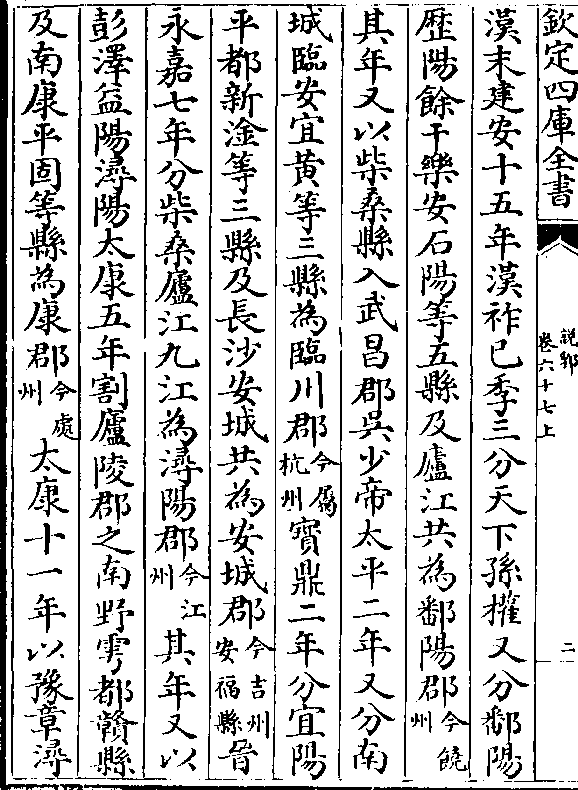 欽定四庫全書
說郛
卷六十七上
二
漢末建安十五年漢祚已季三分天下孫權又分鄱陽
歷陽餘干樂安石陽等五縣及廬江共為鄱陽郡今饒州
其年又以柴桑縣入武昌郡吳少帝太平二年又分南
城臨安宜黃等三縣為臨川郡今屬杭州寳鼎二年分宜陽
平都新淦等三縣及長沙安城共為安城郡今吉州安福縣晉
永嘉七年分柴桑廬江九江為潯陽郡今江州其年又以
彭澤益陽潯陽太康五年割廬陵郡之南野雩都贛縣
及南康平固等縣為康郡今處州太康十一年以豫章潯